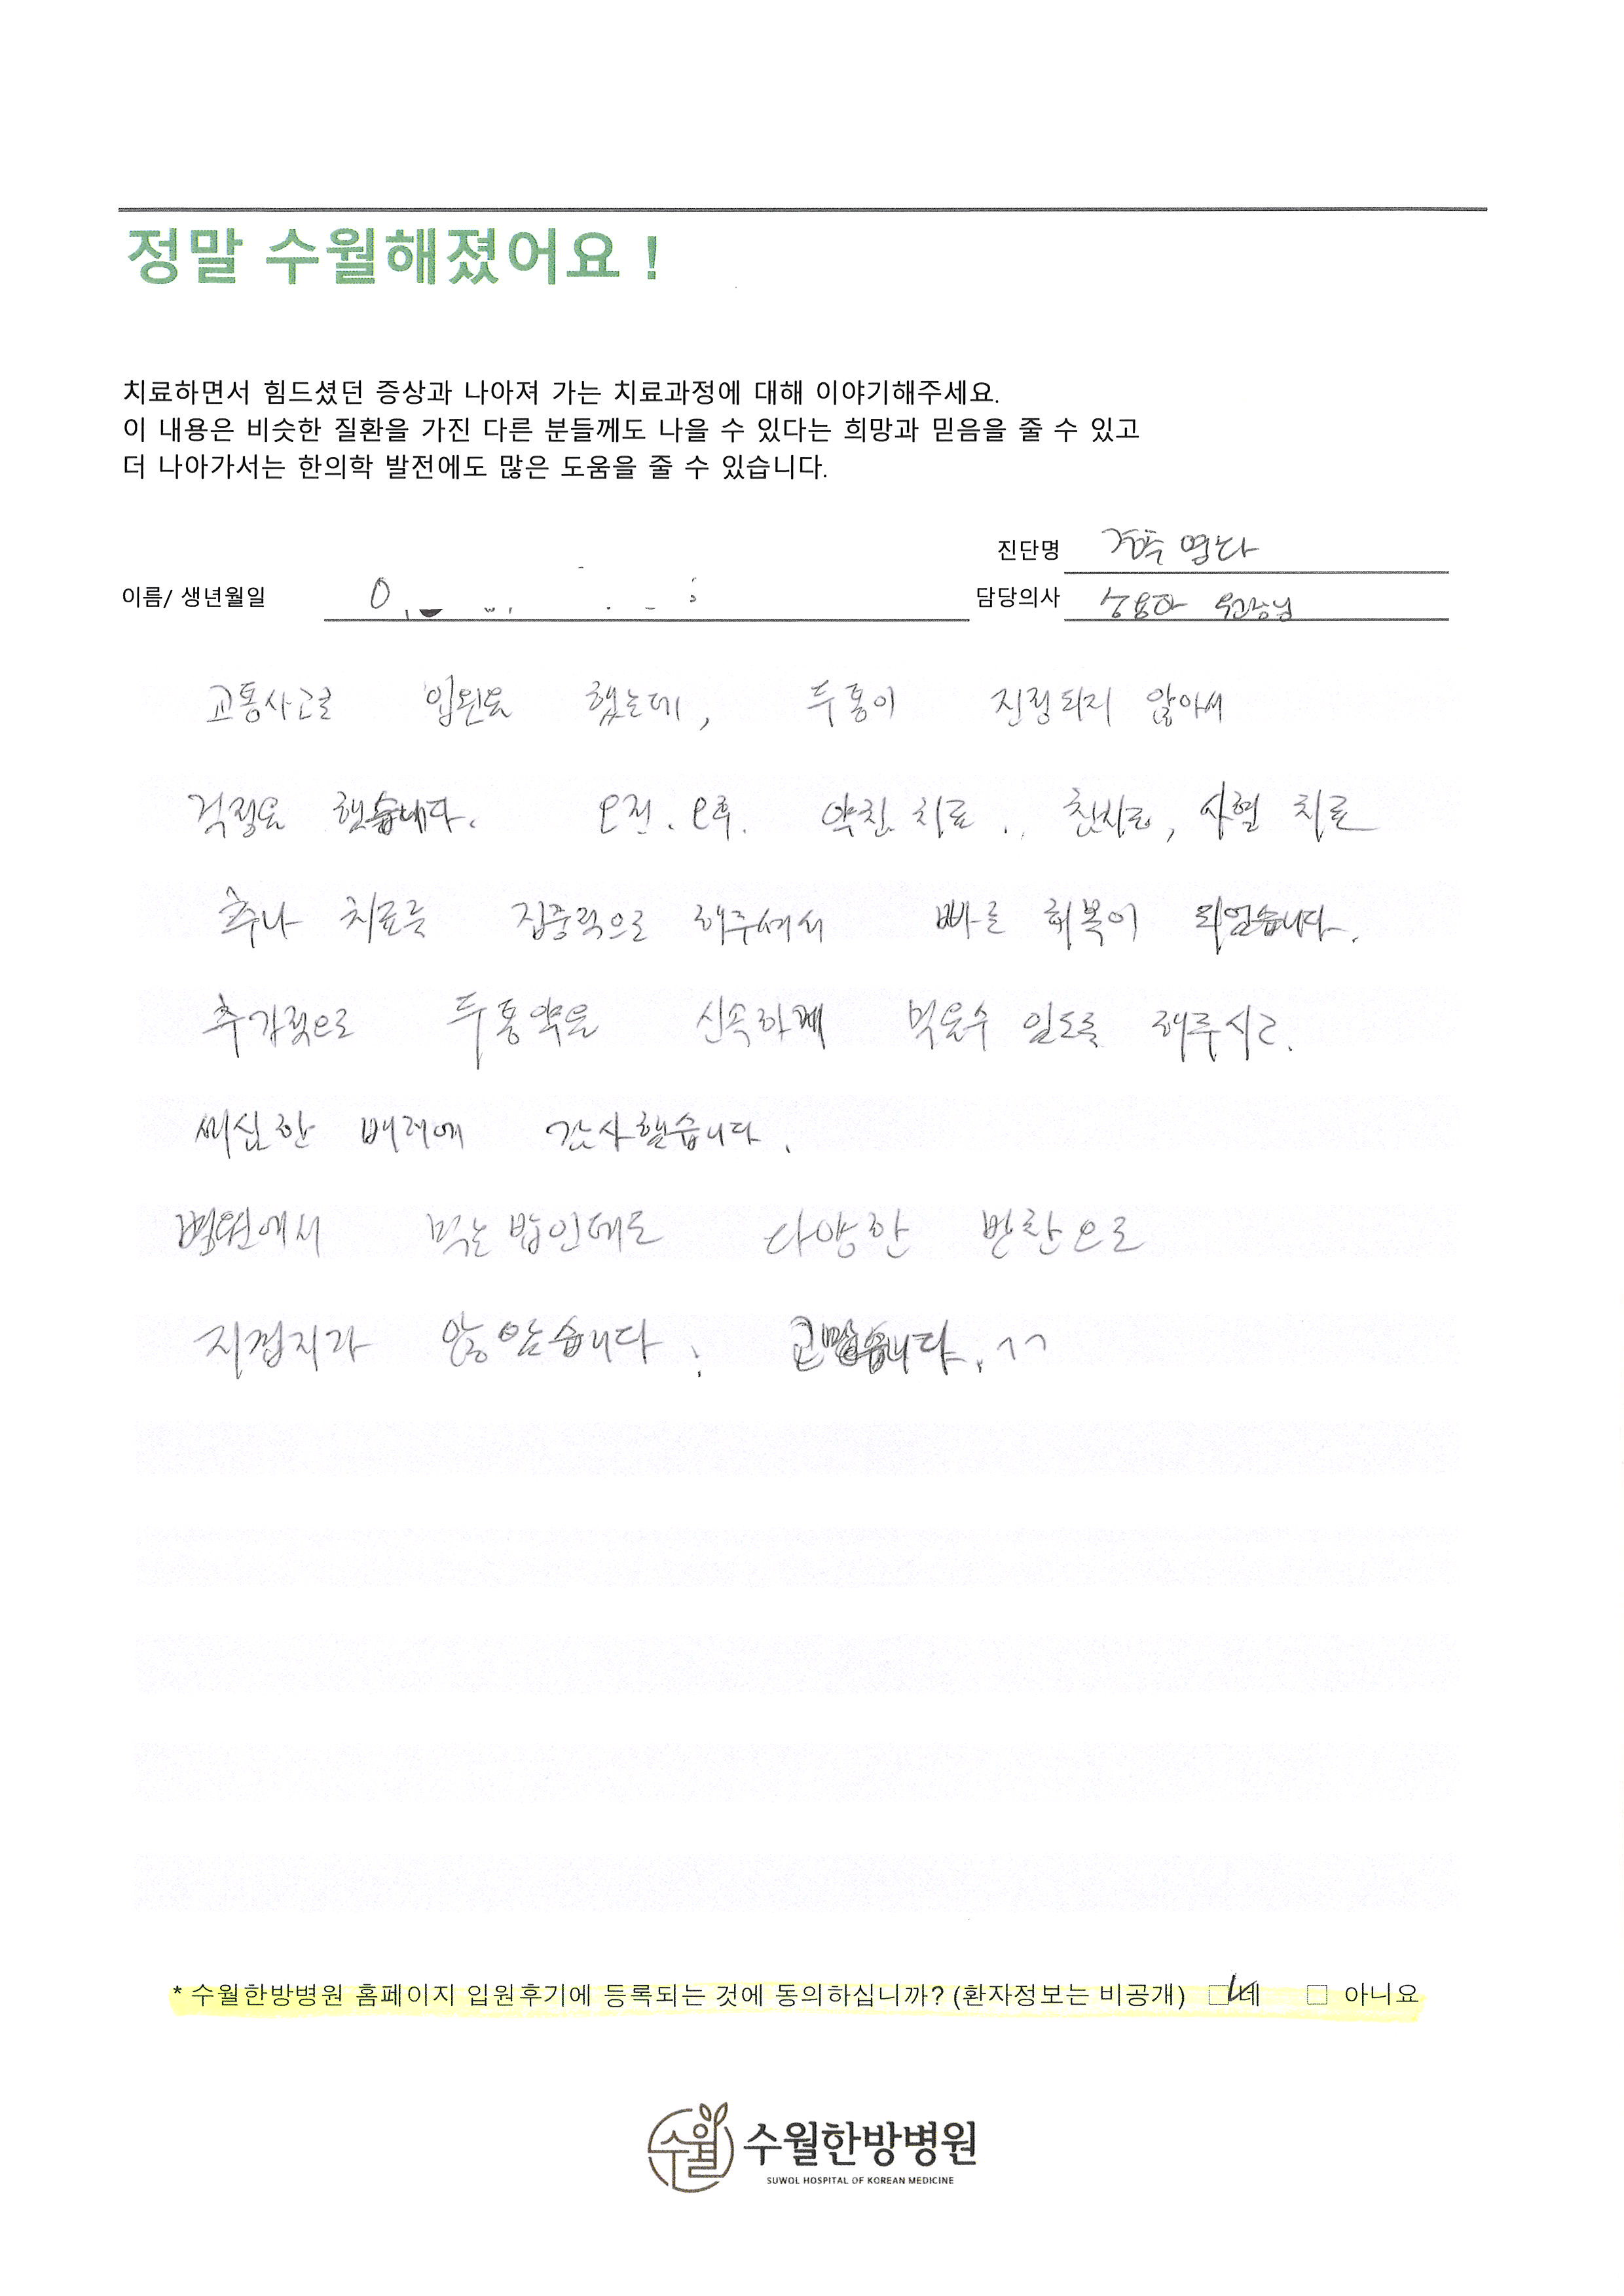 정말 수월해졌어요 !
치료하면서 힘드셨던 증상과 나아져 가는 치료과정에 대해 이야기해주세요.
이 내용은 비슷한 질환을 가진 다른 분들께도 나을 수 있다는 희망과 믿음을 줄 수 있고
더 나아가서는 한의학 발전에도 많은 도움을 줄 수 있습니다.
진단명 경추 염좌
이름/ 생년월일 담당의사 원장님
교통사고로 입원을 했는데, 두통이 진정되지 않아서
걱정을 했습니다. 오전. 오후. 약침 치료., 침치료, 사혈 치료
추나 치료를 집중적으로 해주셔서 빠른 회복이 되었습니다.
추가적으로 두통약을 신속하게 먹을수 있도록 해주시고.
세심한 배려에 감사했습니다.
병원에서 먹는 밥인데도 다양한 반찬으로
지겹지가 않았습니다. 고맙습니다. ^^
* 수월한방병원 홈페이지 입원후기에 등록되는 것에 동의하십니까? (환자정보는 비공개) □ 네 □ 아니요
수월 수월한방병원
SUWOL HOSPITAL OF KOREAN MEDICINE